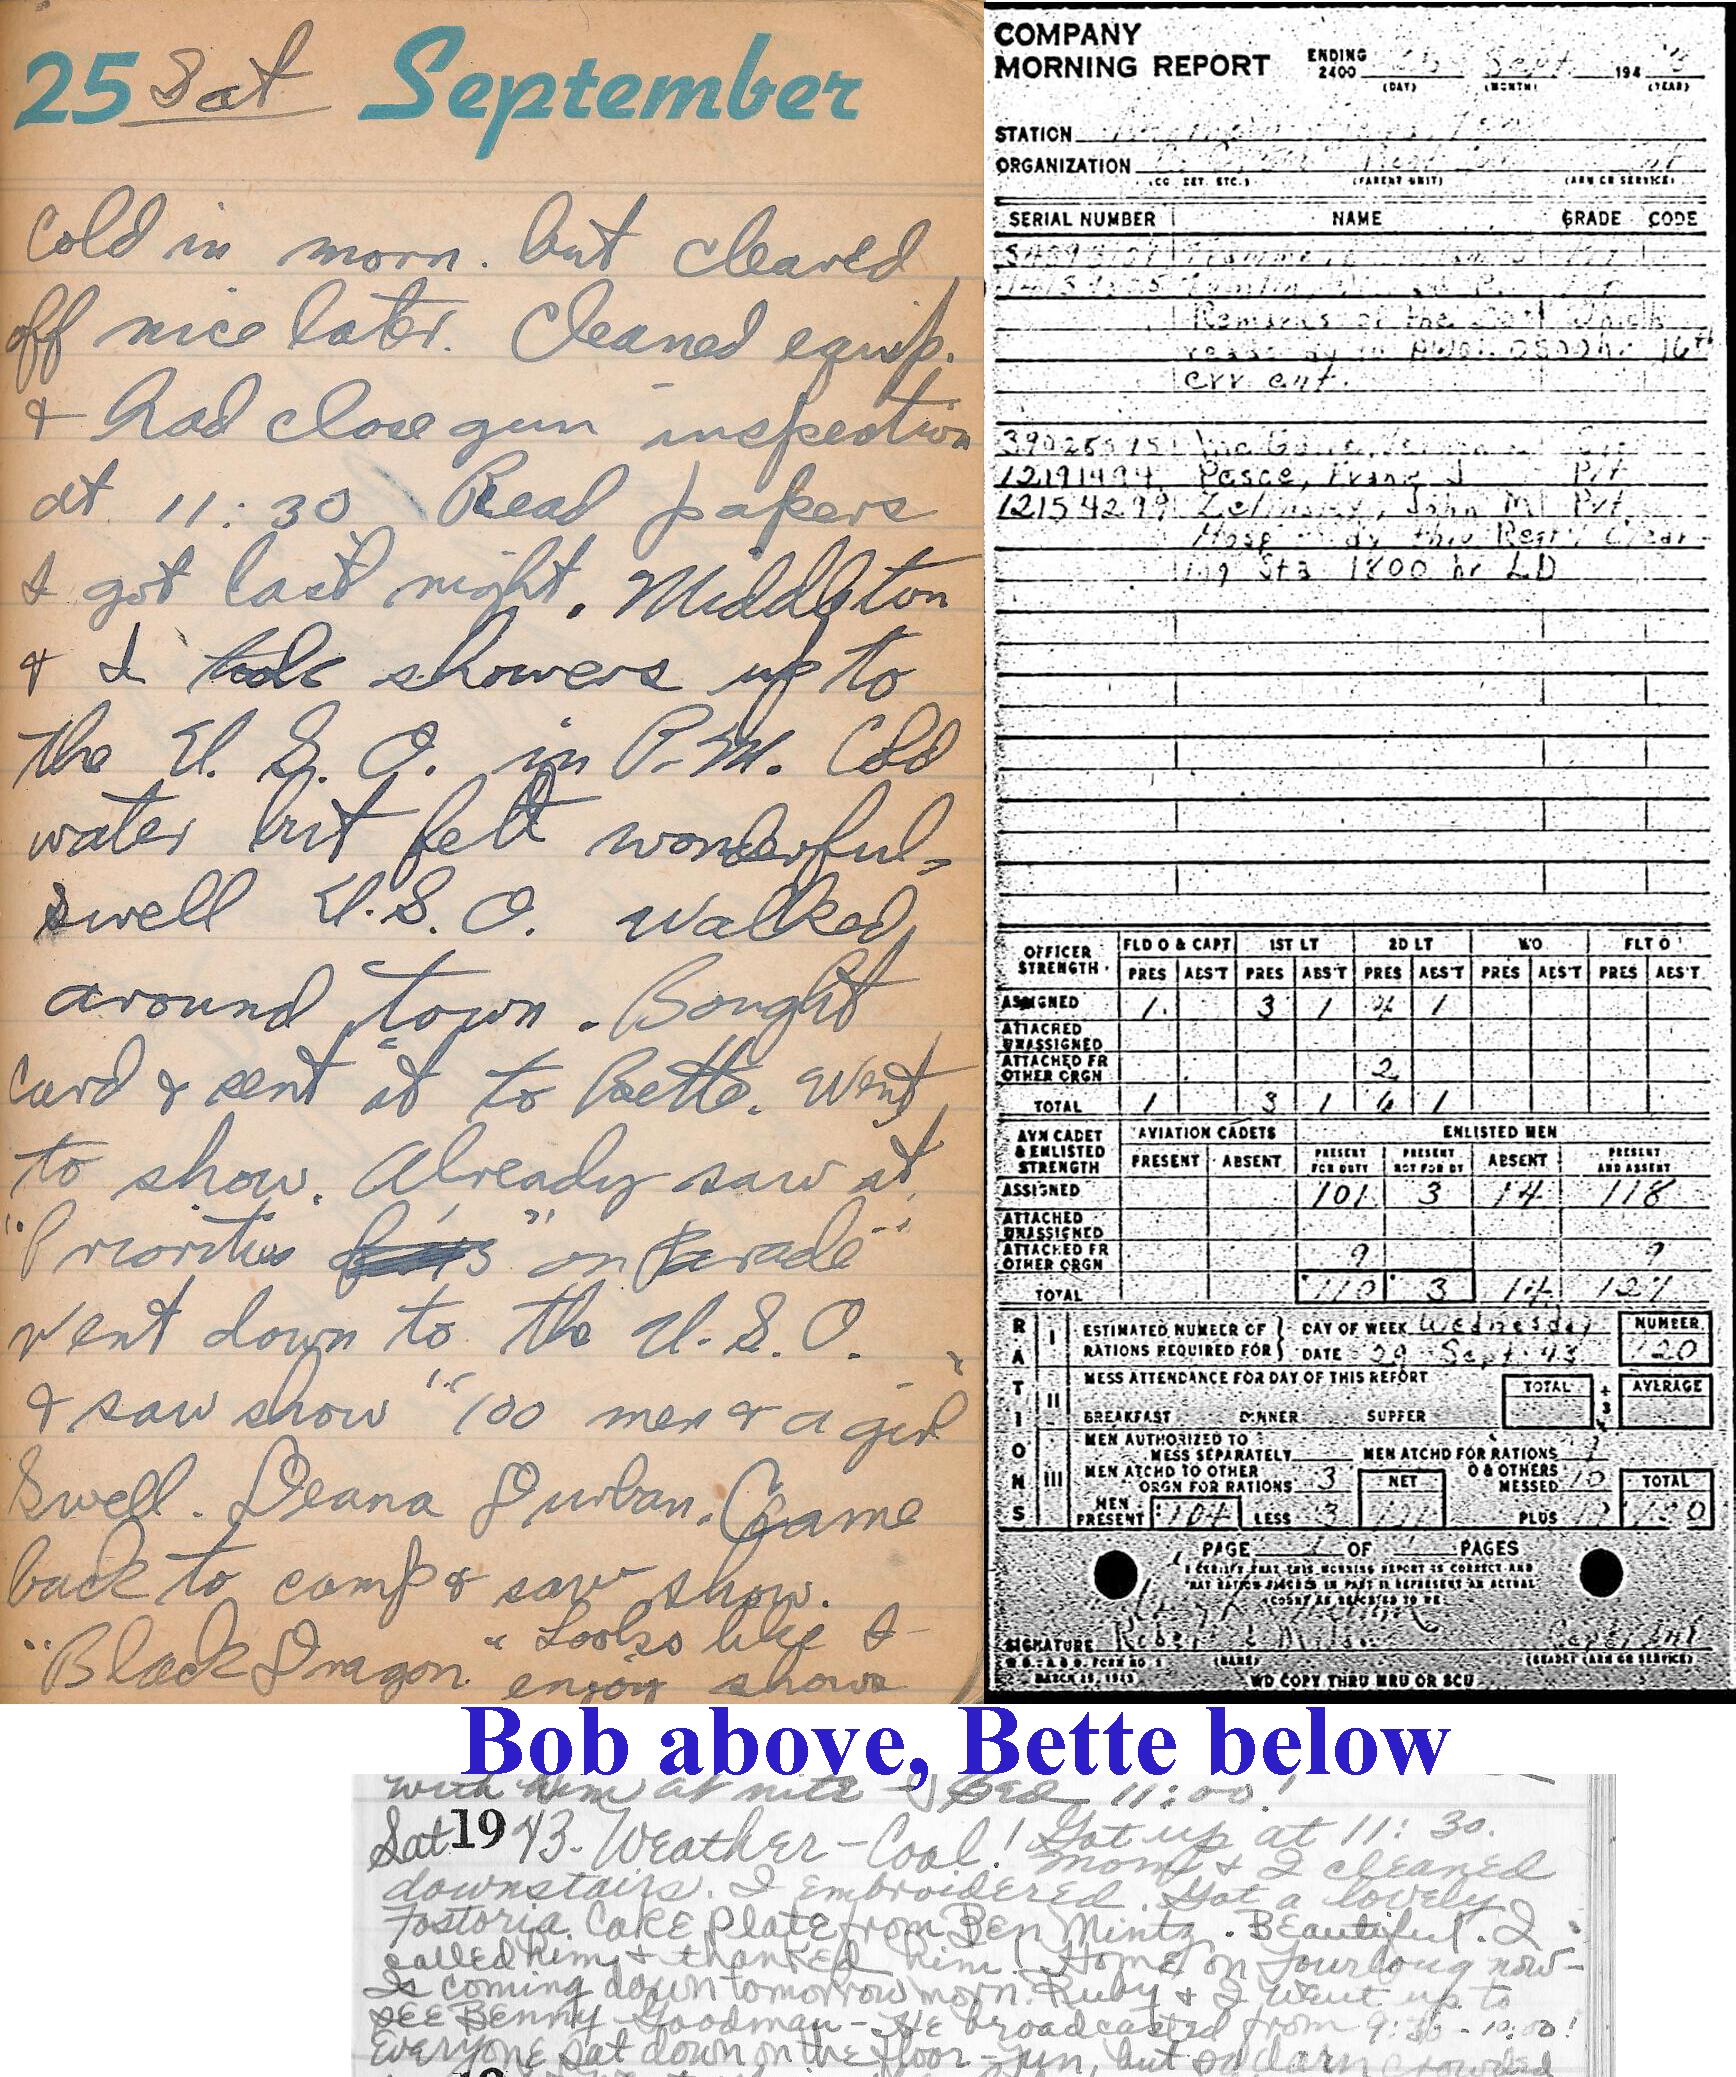 25 Sat September
Cold in morn. but cleared
off nice later. Cleaned equip.
& had close gun inspection
at 11:30 Read papers
I got last night. Middleton
& I took showers up to
the U.S.O. in P.M. Cold
water but felt wonderful,
swell U.S.O. Walked
around town. Bought
card & sent it to Bette. Went
to show. Already saw it,
"Priorities" on Parade"
Went down to the U.S.O.
& saw show "100 men & a girl
Swell. Deana Durban. Came
back to camp & saw show.
"Black Dragon." Looks like I
enjoy shows
COMPANY
MORNING REPORT
ENDING
2400 Sept 194
(DAY) (MONTH) (YEAR)
STATION
ORGANIZATION
(CO. DET. ETC.) (PARENT UNIT) (ARM OR SERVICE)
SERIAL NUMBER NAME GRADE CODE
Remarks of the which
AWOL 0500 hr 16th
39025
12191494 Pasce, Frank J Pvt
12154299 John M Pvt
Hosp this Regt Clear
ing Sta 1800 hr LD
OFFICER STRENGTH FLD O & CAPT 1ST LT 2D LT WO FLT O
PRES ABS'T PRES ABS'T PRES ABS'T PRES ABS'T PRES ABS'T
ASSIGNED 1 3 1 4 1
ATTACHED UNASSIGNED
ATTACHED FR OTHER ORGN 2
TOTAL 1 3 1 6 1
AVN CADET & ENLISTED STRENGTH AVIATION CADETS ENLISTED MEN
PRESENT ABSENT PRESENT FOR DUTY PRESENT NOT FOR DY ABSENT PRESENT AND ABSENT
ASSIGNED 101 3 14 118
ATTACHED UNASSIGNED
ATTACHED FR OTHER ORGN 9 9
TOTAL 110 3 14 127
RATIONS
I ESTIMATED NUMBER OF RATIONS REQUIRED FOR DAY OF WEEK Wednesday NUMBER
DATE 29 Sept 43 120
II MESS ATTENDANCE FOR DAY OF THIS REPORT TOTAL ÷ 3 AVERAGE
BREAKFAST DINNER SUPPER
III MEN AUTHORIZED TO MESS SEPARATELY MEN ATCHD FOR RATIONS
MEN ATCHD TO OTHER ORGN FOR RATIONS 3 NET O & OTHERS MESSED 10 TOTAL
MEN PRESENT 104 LESS 3 PLUS 120
PAGE 1 OF 1 PAGES
I CERTIFY THAT THIS MORNING REPORT IS CORRECT AND
THAT RATION FIGURES IN PART II REPRESENT AN ACTUAL
COUNT AS REPORTED TO ME:
SIGNATURE Capt, Inf
W.D., A.G.O. FORM NO 1 (NAME) (GRADE) (ARM OR SERVICE)
MARCH 15, 1943 WD COPY THRU MRU OR SCU
Bob above, Bette below
with him at nite - Bed 11:00!
Sat 1943. Weather - Cool! Got up at 11:30.
Mom & I cleaned
downstairs. I embroidered. Got a lovely
Fostoria Cake Plate from Ben Mintz. Beautiful. I
called him & thanked him. Home on Fourloug now -
Is coming down tomorrow morn. Ruby & I went up to
see Benny Goodman - He broadcasted from 9:30 - 10:00!
Everyone sat down on the floor - fun, but so darn crowded